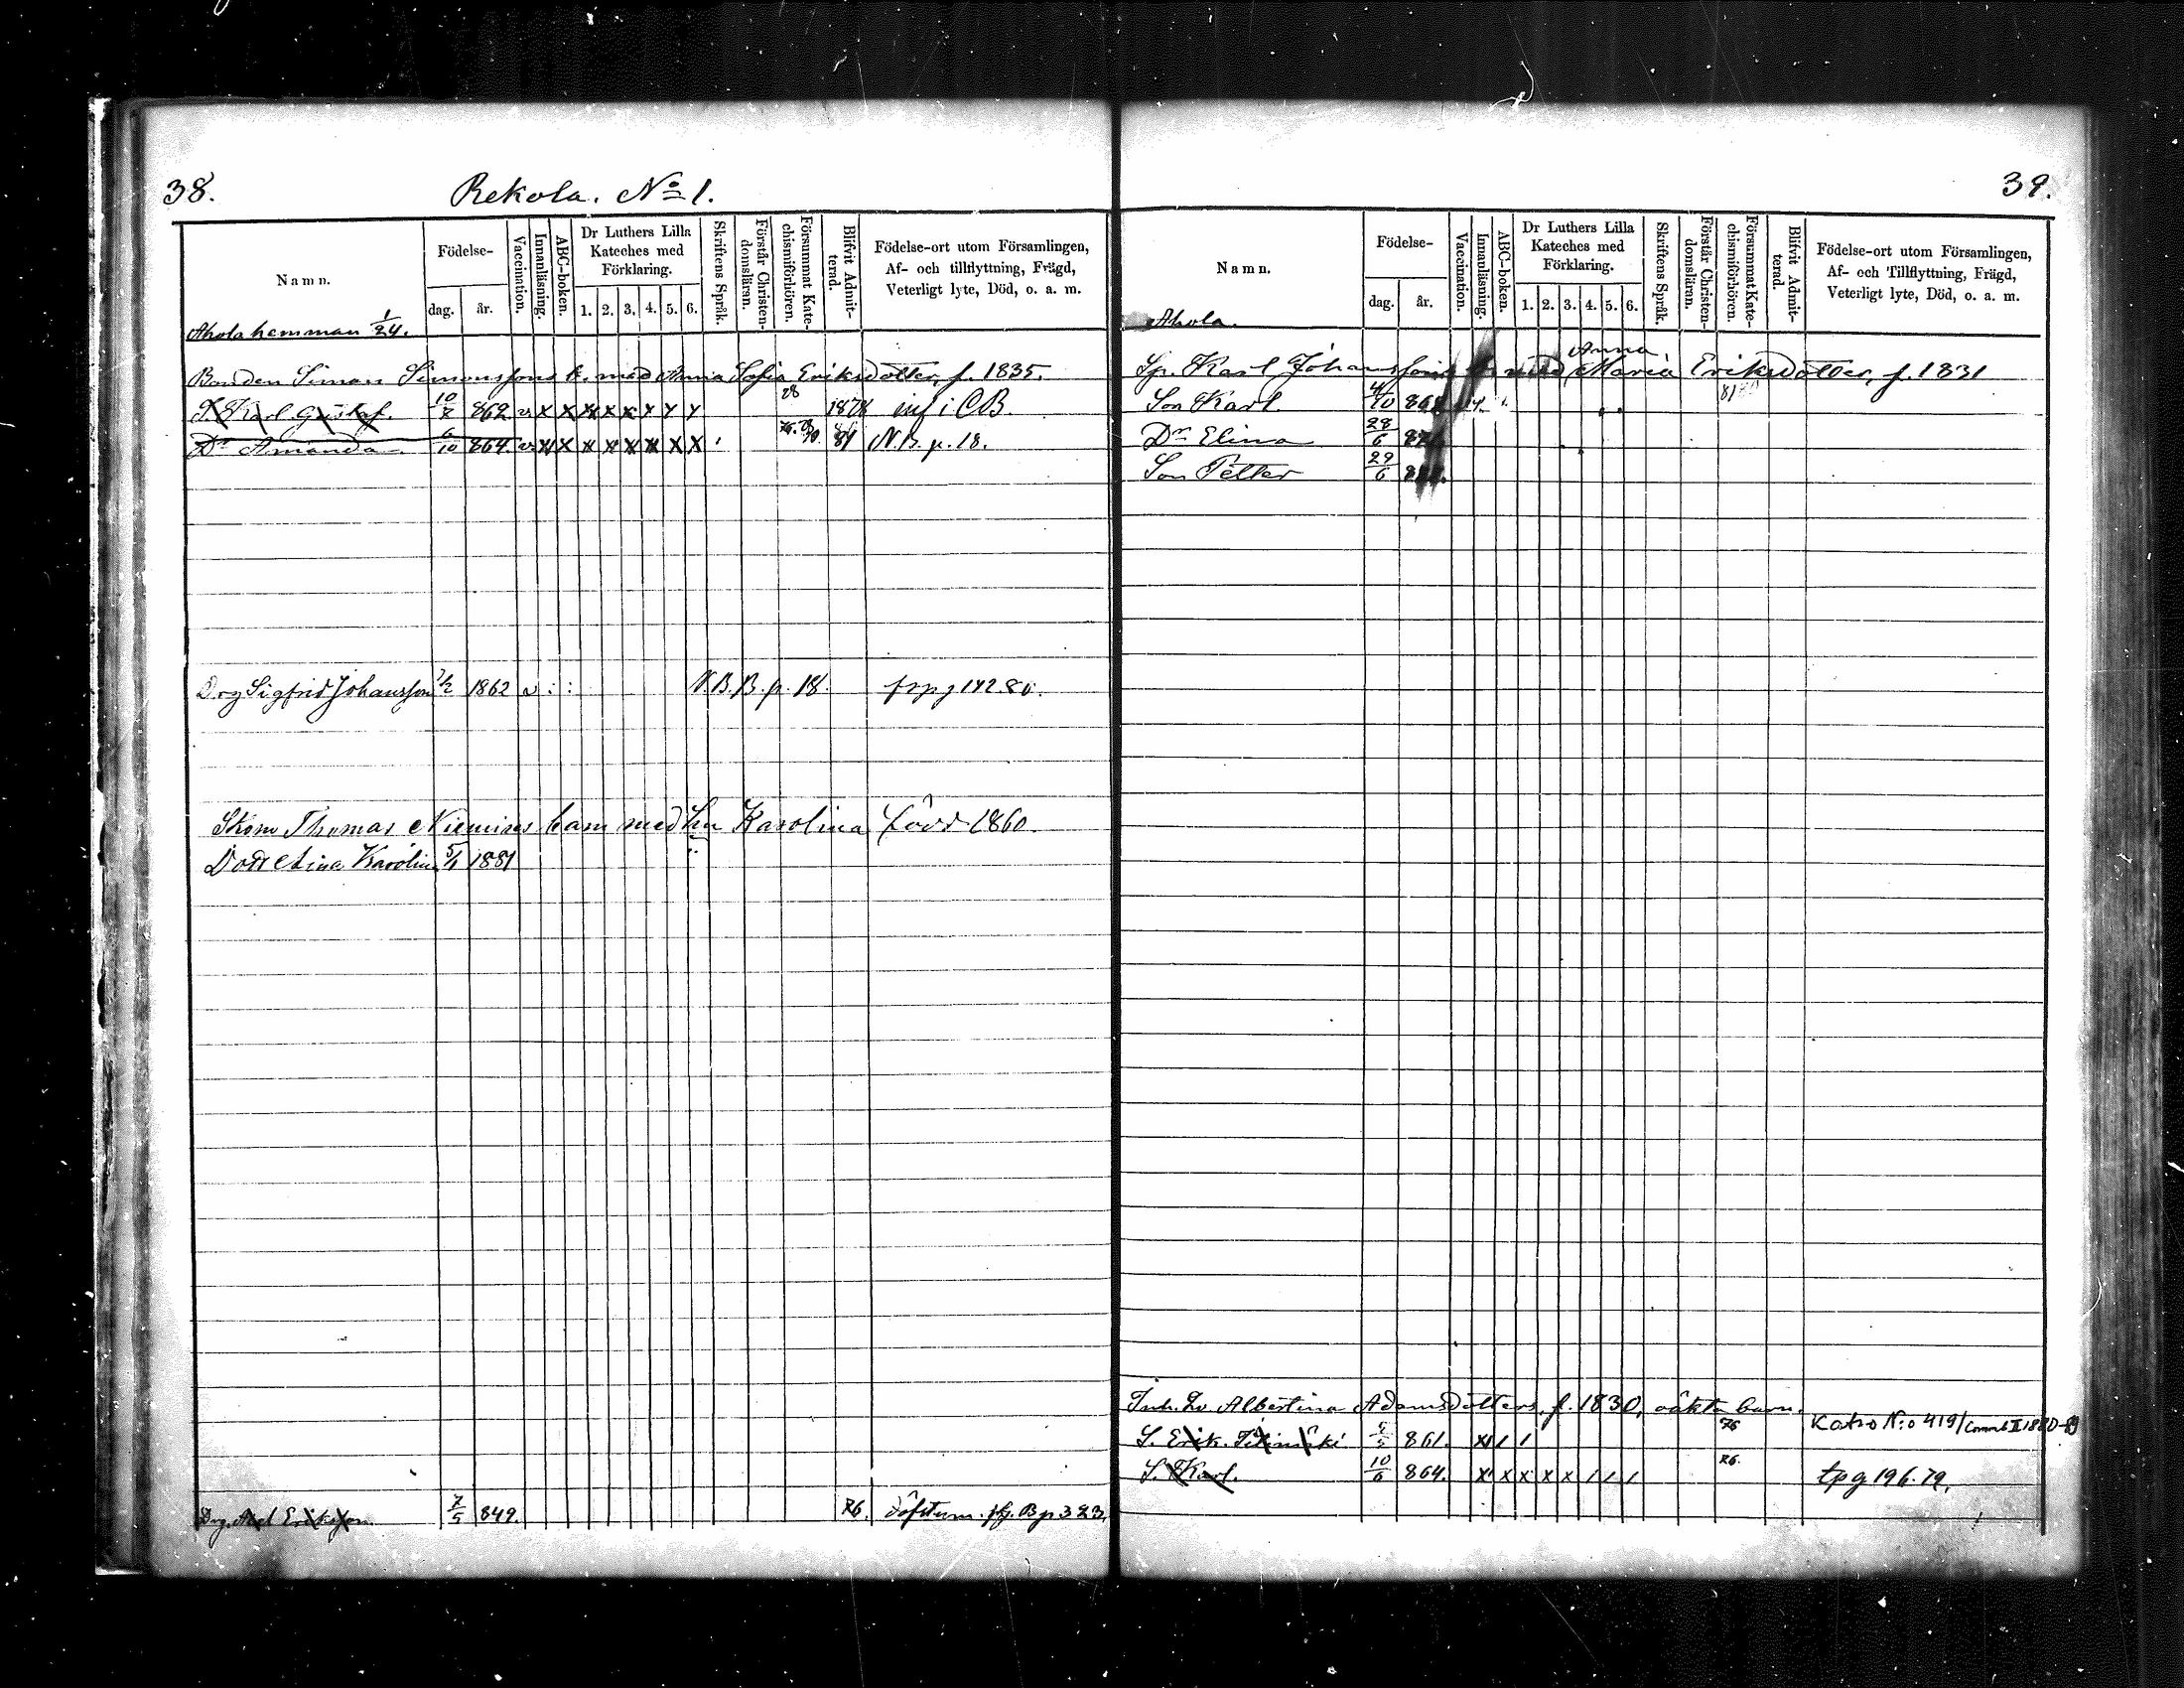 38.
Rekola. No 1.
Namn.
Födelse-
dag. år.
Vaccination.
Innanläsning.
ABC-boken.
Dr Luthers Lilla Kateches med Förklaring.
1. 2. 3. 4. 5. 6.
Skriftens Språk.
Förstår Christen-domsläran.
Försummat Kate-chismiförhören.
Blifvit Admit-terad.
Födelse-ort utom Församlingen, Af- och tillflyttning, Frägd, Veterligt lyte, Död, o. a. m.
Ahola hemman 1/24.
Bonden Simon Simonssons b. med Anna Sofia Eriksdotter, f. 1835.
S. Karl Gustaf. 10/7 862 v x x x x x x x x 78 1878 inf i CB.
Dr Amanda 6/10 864. v x x x x x x x x 81 N.B. p. 18.
Drg Sigfrid Johansson 7/2 1862 v : : N.B.B. p. 18. 142 80.
Thomas Niemines barn med hu Karolina född 1860.
Dottr Karolina 5/1 1881
Drg. Axel Eriksson. 7/5 849. 76. B p 323.
39.
Namn.
Födelse-
dag. år.
Vaccination.
Innanläsning.
ABC-boken.
Dr Luthers Lilla Kateches med Förklaring.
1. 2. 3. 4. 5. 6.
Skriftens Språk.
Förstår Christen-domsläran.
Försummat Kate-chismiförhören.
Blifvit Admit-terad.
Födelse-ort utom Församlingen, Af- och Tillflyttning, Frägd, Veterligt lyte, Död, o. a. m.
Ahola.
Anna
Sp. Karl Johanssons b. med Maria Eriksdotter, f. 1831
Son Karl 4/10 81
Dr Elina 28/6
Son Petter 29/6
Inh. Albertina Adamsdotters, f. 1830, oäkta barn.
S. Erik. 861. x 1 1 76 Katso N:o 419/ Comb II 1880-89
S. Karl. 10/6 864. x x x x x 1 1 1 76. tpg 196. 79.